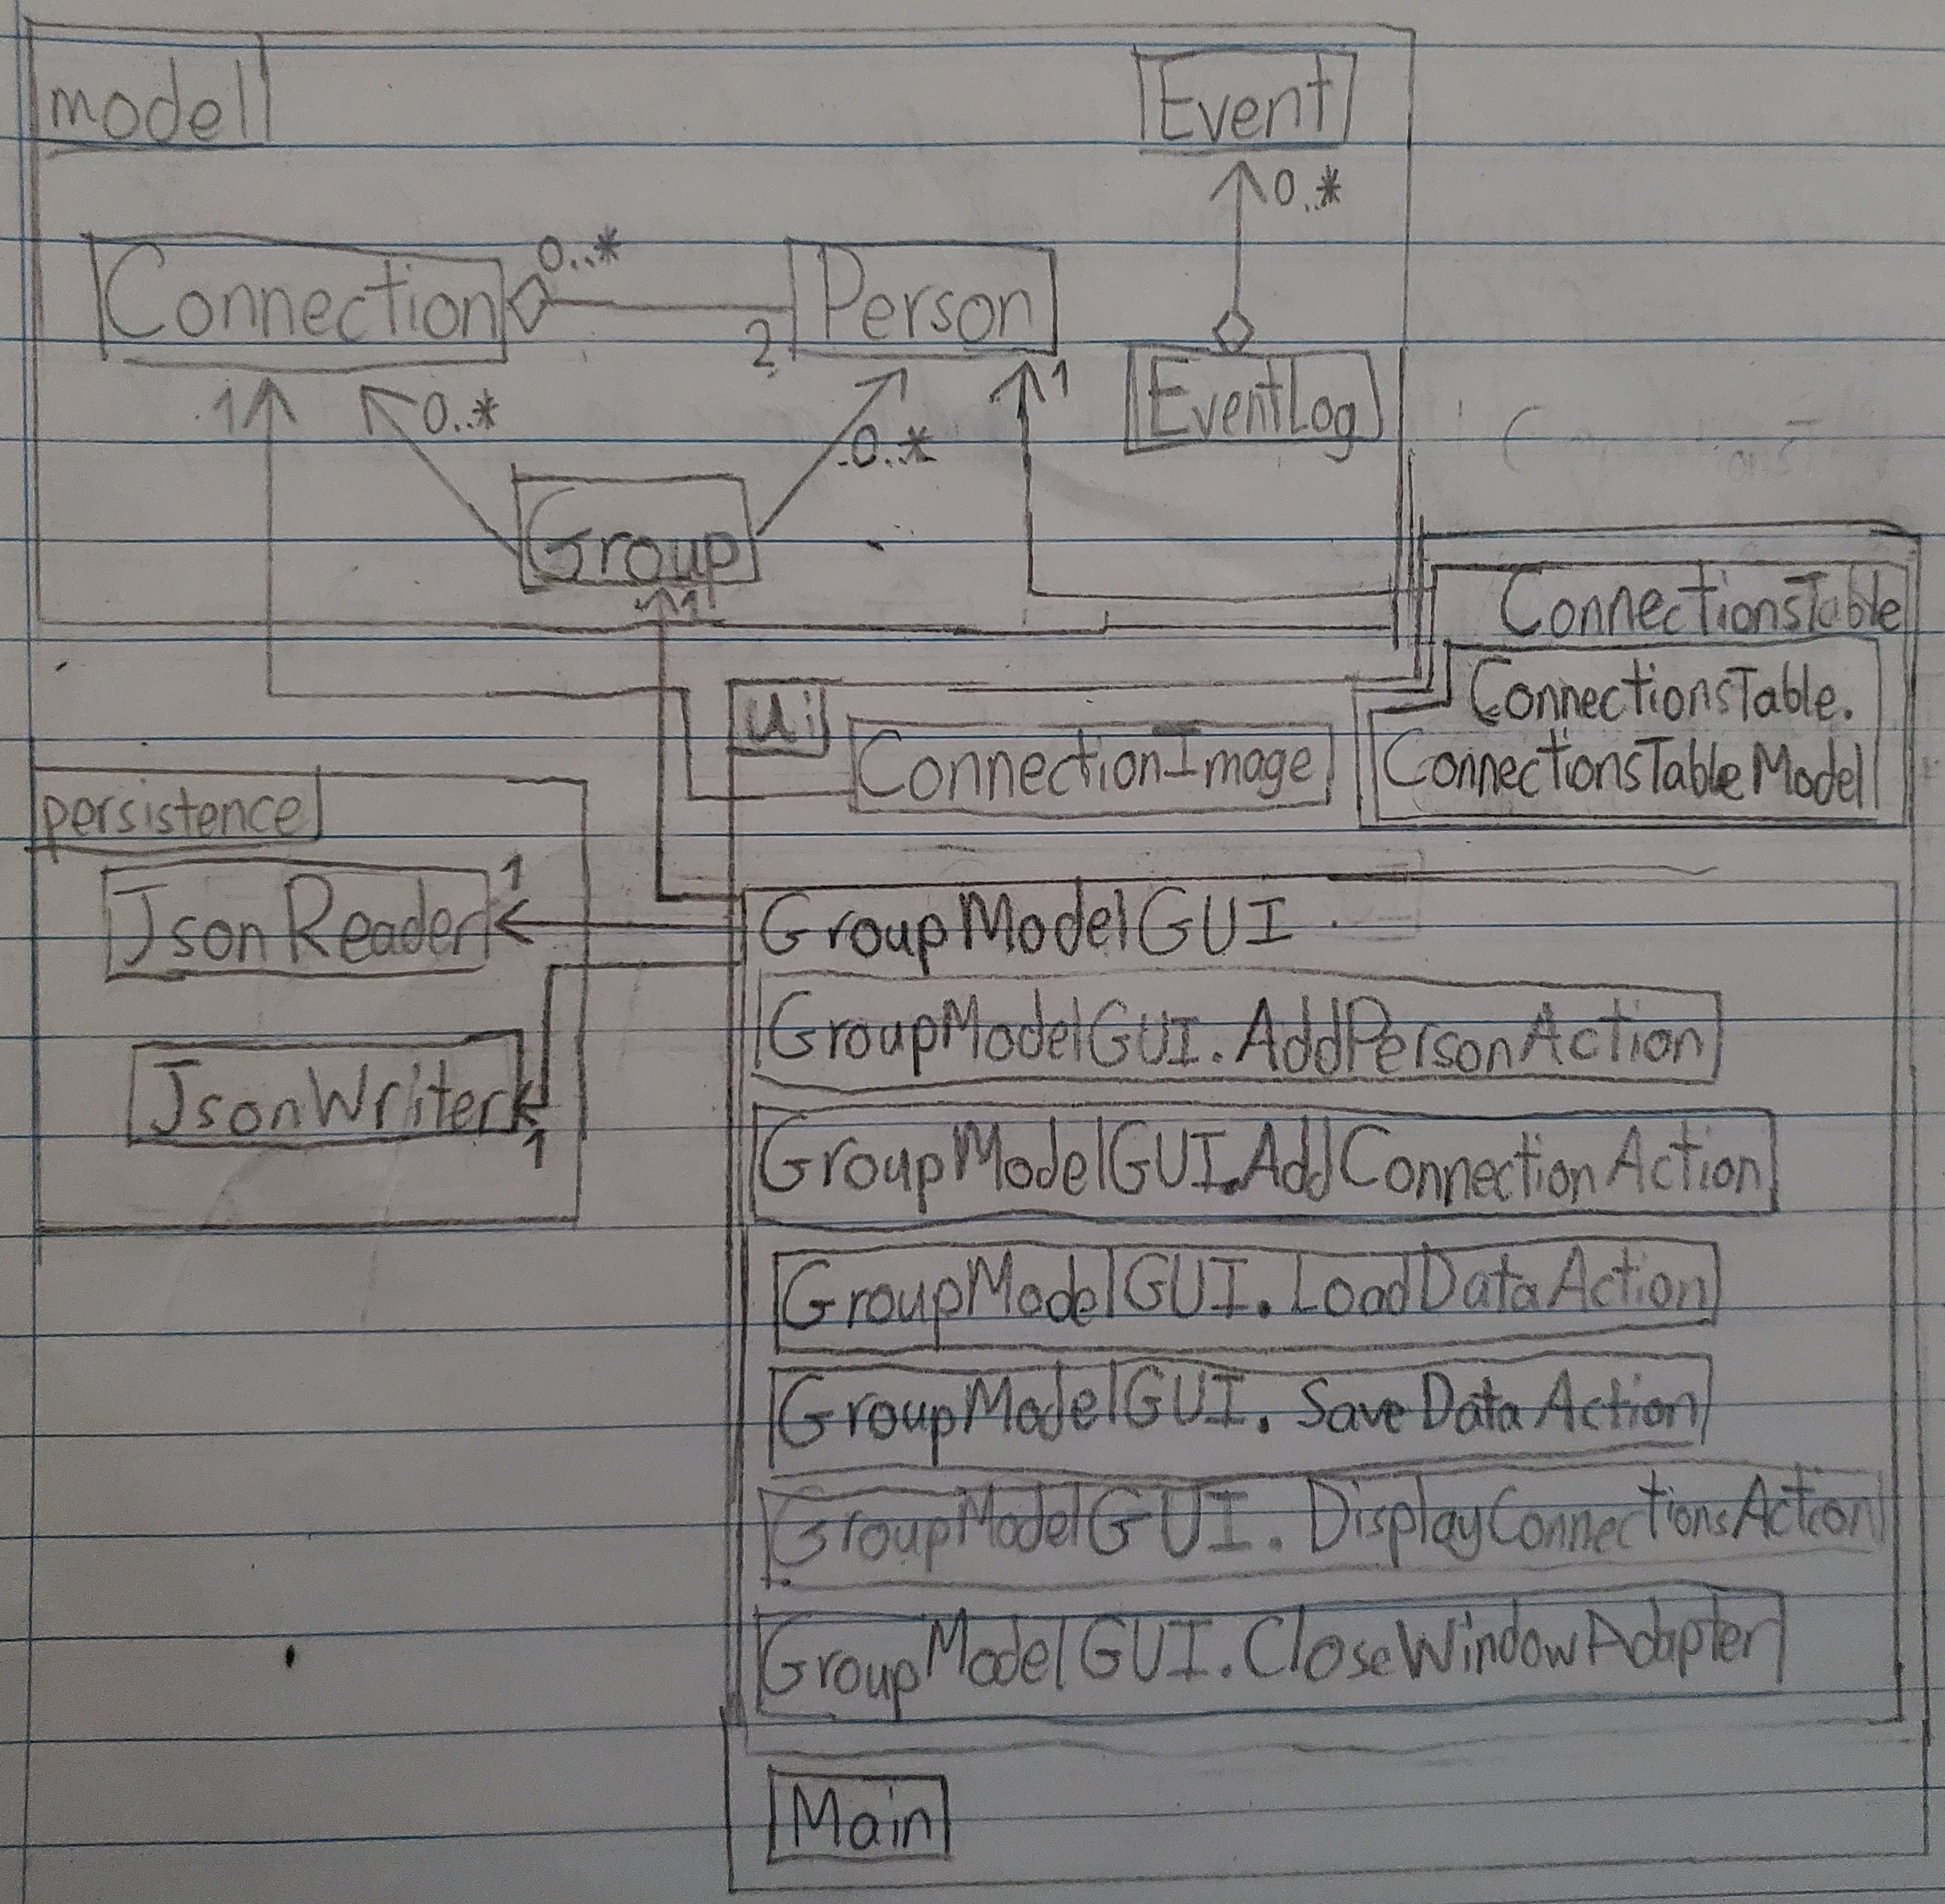 model
Event
0..*
Connection
0..*
2
Person
1
0..*
0..*
1
EventLog
Group
1
ConnectionsTable
ui
ConnectionImage
ConnectionsTable.
ConnectionsTableModel
persistence
JsonReader
1
GroupModelGUI
GroupModelGUI.AddPersonAction
JsonWriter
1
GroupModelGUI.AddConnectionAction
GroupModelGUI.LoadDataAction
GroupModelGUI.SaveDataAction
GroupModelGUI.DisplayConnectionsAction
GroupModelGUI.CloseWindowAdapter
Main